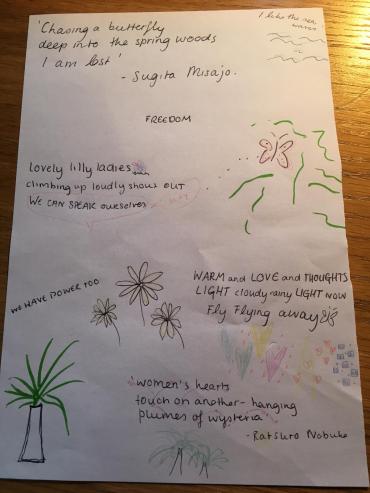 'Chasing a butterfly
deep into the spring woods
I am lost'
- Sugita Misajo.
I like the sea,
waves
FREEDOM
lovely lilly ladies
climbing up loudly shout OUT
WE CAN SPEAK ourselves
WE HAVE POWER TOO
WARM and LOVE and THOUGHTS
LIGHT cloudy rainy LIGHT NOW
Fly Flying away
'women's hearts
touch on another- hanging
plumes of wysteria'
- Katsuro Nobuko